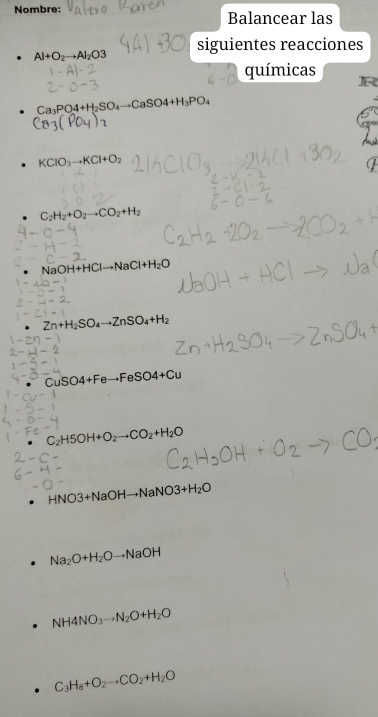 Nombre: Valero Karen
Balancear las
siguientes reacciones
químicas
• Al+O₂→Al₂O3 4Al+3O
1-Al-2
2-O-3
6-O
• Ca₃PO4+H₂SO₄→CaSO4+H₃PO₄
Ca3(PO4)2
• KClO₃→KCl+O₂ 2KClO₃→2KCl+3O₂
2-K-2
2-Cl-2
6-O-6
• C₂H₂+O₂→CO₂+H₂
4-O-4
2-H-2
2-C-2
C₂H₂+2O₂→2CO₂+H
• NaOH+HCl→NaCl+H₂O
1-Na-1
1-O-1
2-H-2
1-Cl-1
NaOH + HCl → Na
• Zn+H₂SO₄→ZnSO₄+H₂
1-Zn-1
2-H-2
1-S-1
4-O-4
Zn+H2SO4→ZnSO4+
• CuSO4+Fe→FeSO4+Cu
1-Cu-1
1-S-1
4-O-4
1-Fe-1
• C₂H5OH+O₂→CO₂+H₂O
2-C-
6-H-
-O-
C₂H₅OH + O₂ → CO₂
• HNO3+NaOH→NaNO3+H₂O
• Na₂O+H₂O→NaOH
• NH4NO₃→N₂O+H₂O
• C₃H₈+O₂→CO₂+H₂O